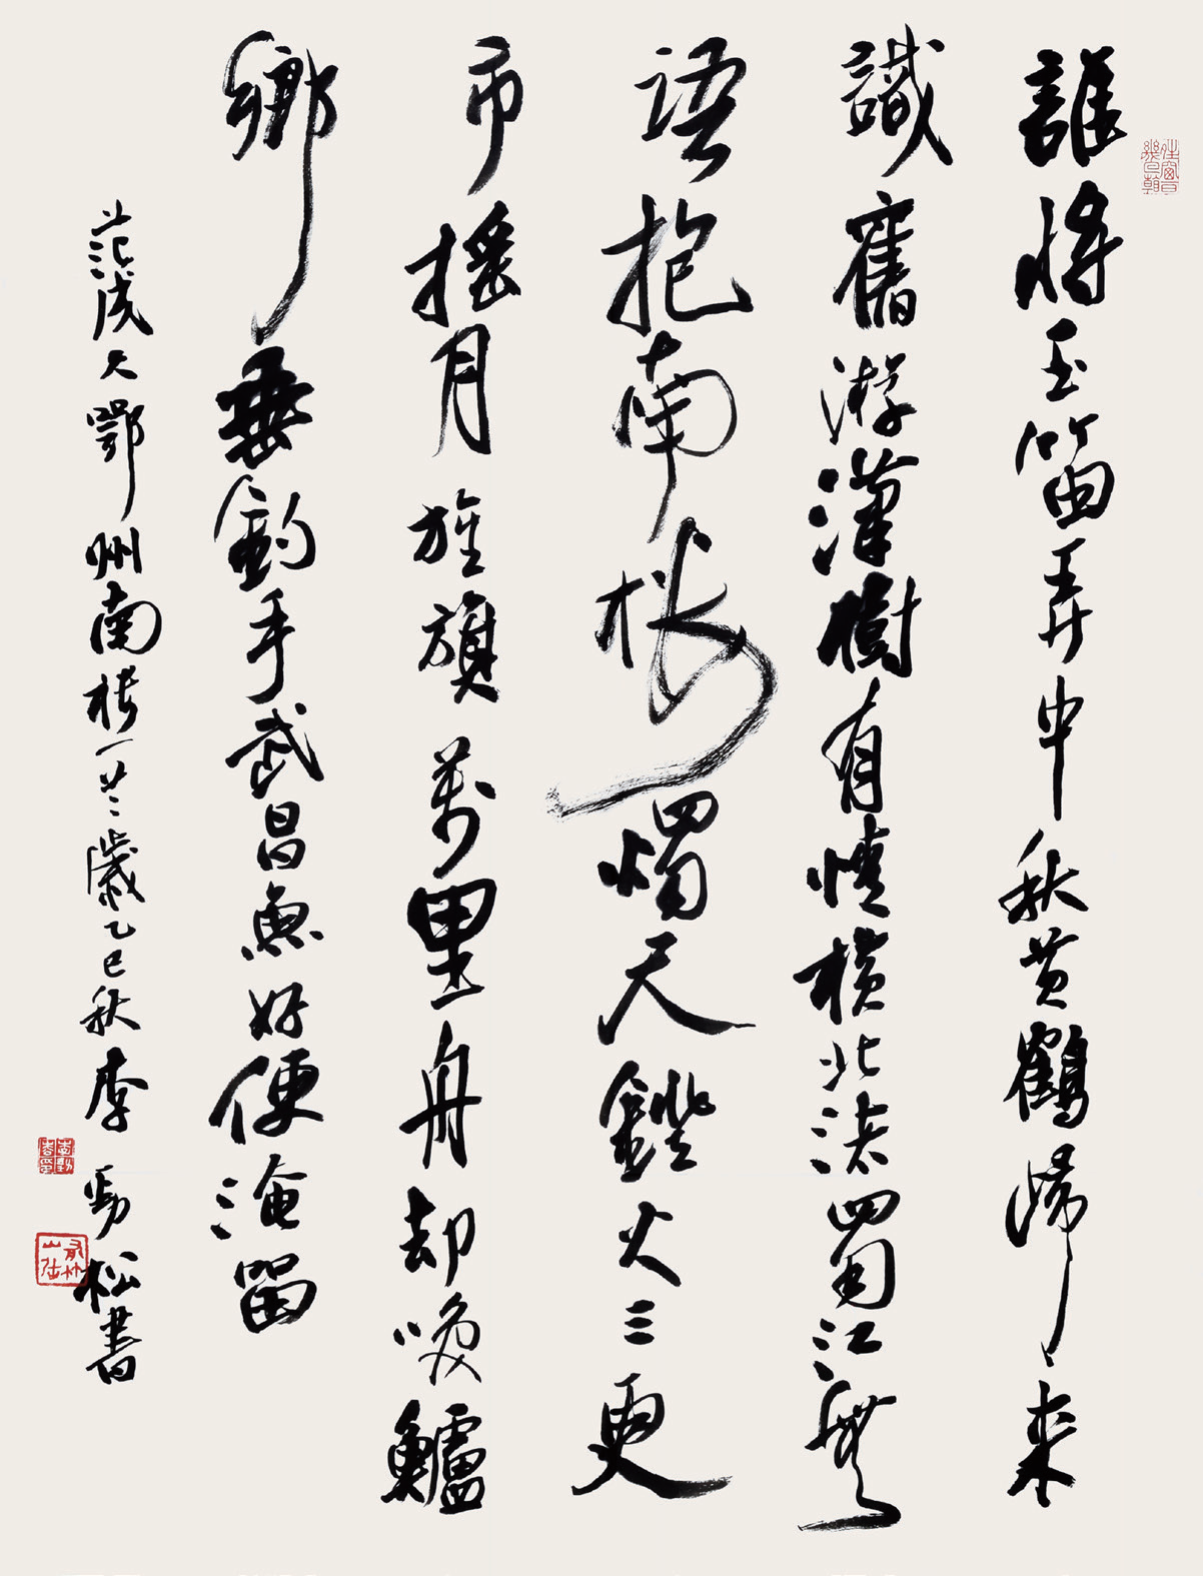 誰將玉笛弄中秋黄鶴歸来
識舊游漢樹有情横北渚蜀江無
語抱南樓燭天鐙火三更
市摇月旌旗萬里舟却喚鱸
鄉垂釣手武昌魚好便淹留
范成大鄂州南樓一首歲乙巳秋李勁松書